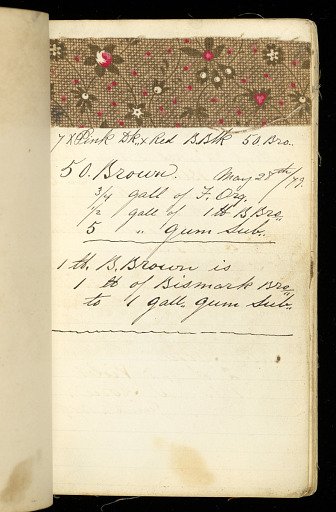 7 X Pink Dk. x Red B. Blk 50. Bro.
50. Brown. May 28th/79.
3/4 gall of F. Org.
1/2 gall of 1 ℔ B. Bro.
5 " gum Sub.
1 ℔. B. Brown is
1 ℔ of Bismark Bro
to 1 gall. gum Sub.